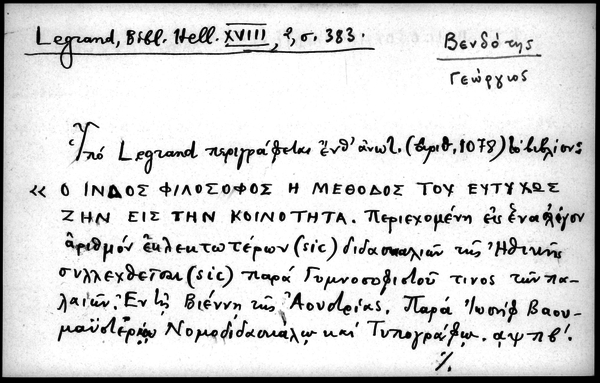 Legrand, Bibl. Hell. XVIII, 2, σ. 383.
Βενδότης
Γεώργιος
Ὑπό Legrand περιγράφεται ἔνθ' ἀνωτ. (ἀριθ. 1078) τό βιβλίον:
« Ο ΙΝΔΟΣ ΦΙΛΟΣΟΦΟΣ Η ΜΕΘΟΔΟΣ ΤΟΥ ΕΥΤΥΧΩΣ
ΖΗΝ ΕΙΣ ΤΗΝ ΚΟΙΝΟΤΗΤΑ. Περιεχομένη εἰς ἕνα ὀλίγον
ἀριθμόν ἐκλεκτωτέρων (sic) διδασκαλιῶν τῆς Ἠθικῆς
συλλεχθεῖσαι (sic) παρά Γυμνοσοφιστοῦ τινος τῶν πα-
λαιῶν. Ἐν τῇ Βιέννῃ τῆς Ἀουστρίας. Παρά Ἰωσήφ Βαου-
μαϋστέρῳ Νομοδιδασκάλῳ καί Τυπογράφῳ. αψπβ'.
%